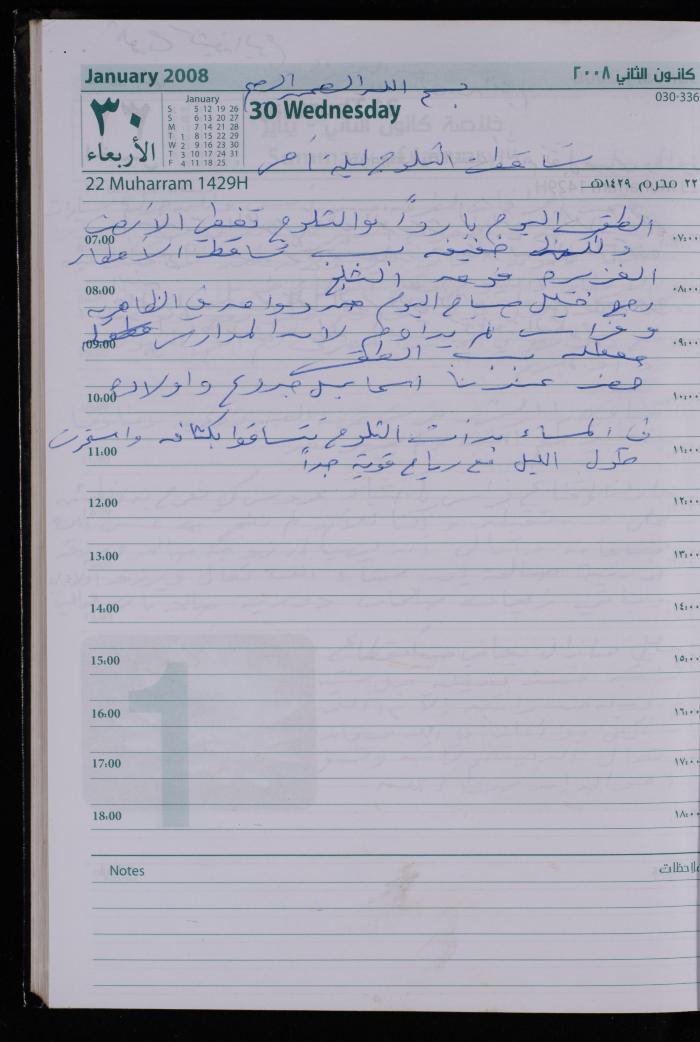 January 2008
كانون الثاني ٢٠٠٨
بسم الله الرحمن الرحيم
030-336
٣٠
الأربعاء
January
S 5 12 19 26
S 6 13 20 27
M 7 14 21 28
T 1 8 15 22 29
W 2 9 16 23 30
T 3 10 17 24 31
F 4 11 18 25
30 Wednesday
تساقطت الثلوج ليلة أمس
22 Muharram 1429H
٢٢ محرم ١٤٢٩هـ
الطقس اليوم بارداً والثلوج تغطي الأرض
07:00 ٠٧:٠٠
ولكنها خفيفه بسبب تساقط الأمطار
الغزيره فوق الثلج
08:00 ٠٨:٠٠
صباح اليوم
وفراس لم يداوم لان المدارس
09:00 ٠٩:٠٠
معطله بسبب الطقس
حضر عندنا اسماعيل واولاده
10:00 ١٠:٠٠
في المساء بدأت الثلوج تتساقط بكثافه واستمرت
11:00 ١١:٠٠
طول الليل مع رياح قوية جداً
12:00 ١٢:٠٠
13:00 ١٣:٠٠
14:00 ١٤:٠٠
15:00 ١٥:٠٠
1
16:00 ١٦:٠٠
17:00 ١٧:٠٠
18:00 ١٨:٠٠
Notes
لاحظات